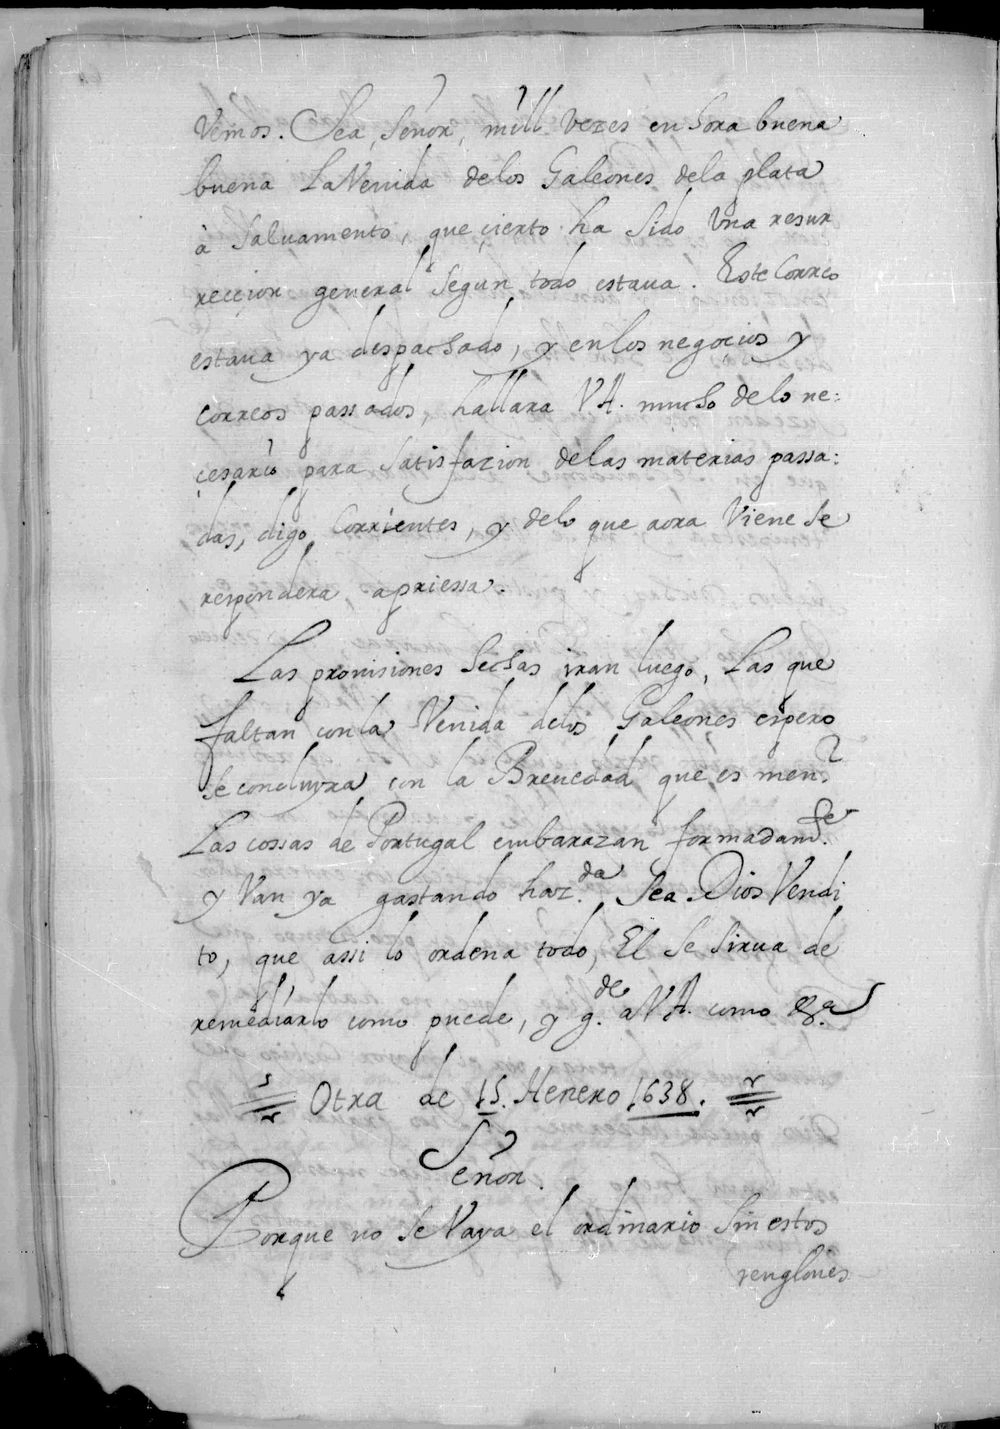 Vemos. Sea, Señor, mill vezes en hora buena
buena La Venida de los Galeones de la plata
à saluamento, que çierto ha sido Vna resur
reccion general segun todo estaua. Este Correo
estaua ya despachado, y en los negoçios y
correos passados, hallara VA. mucho de lo ne:
çesario para satisfazion de las materias passa:
das, digo Corrientes, y de lo que aora Viene se
respondera apriessa.
Las prouisiones hechas iran luego, Las que
faltan con la Venida de los Galeones espero
se concluyra con la Breuedad que es menr.
Las cossas de Portugal embarazan formadamte.
y Van ya gastando hazda. Sea Dios Vendi
to, que assi lo ordena todo, El se sirua de
remediarlo como puede, y gde. a VA. como &a
Otra de 15. Henero 1638.
Señor.
Porque no se Vaya el ordinario sin estos
renglones